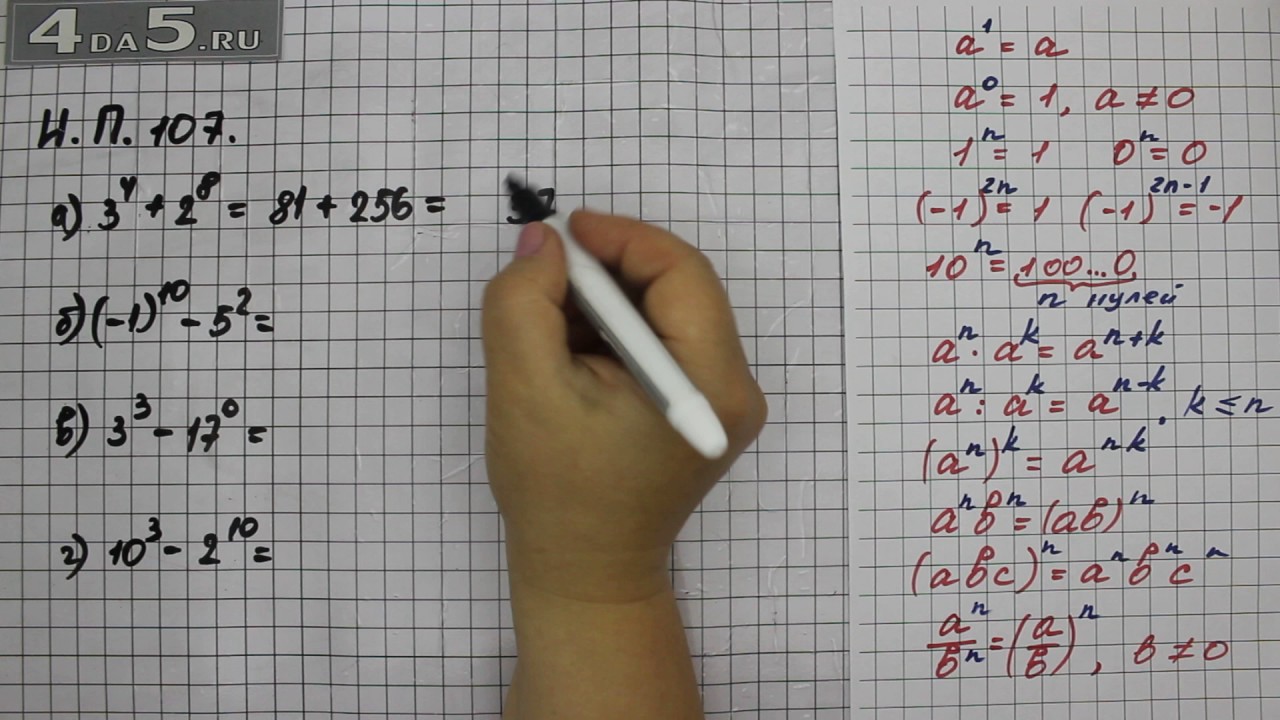 4DA5.RU
Н. П. 107.
а) 3⁴ + 2⁸ = 81 + 256 = 3
б) (-1)¹⁰ - 5² =
в) 3³ - 17⁰ =
г) 10³ - 2¹⁰ =
a¹ = a
a⁰ = 1, a ≠ 0
1ⁿ = 1 0ⁿ = 0
(-1)²ⁿ = 1 (-1)²ⁿ⁻¹ = -1
10ⁿ = 100...0
n нулей
aⁿ · aᵏ = aⁿ⁺ᵏ
aⁿ : aᵏ = aⁿ⁻ᵏ, k ≤ n
(aⁿ)ᵏ = aⁿᵏ
aⁿbⁿ = (ab)ⁿ
(abc)ⁿ = aⁿbⁿcⁿ
aⁿ/bⁿ = (a/b)ⁿ, b ≠ 0